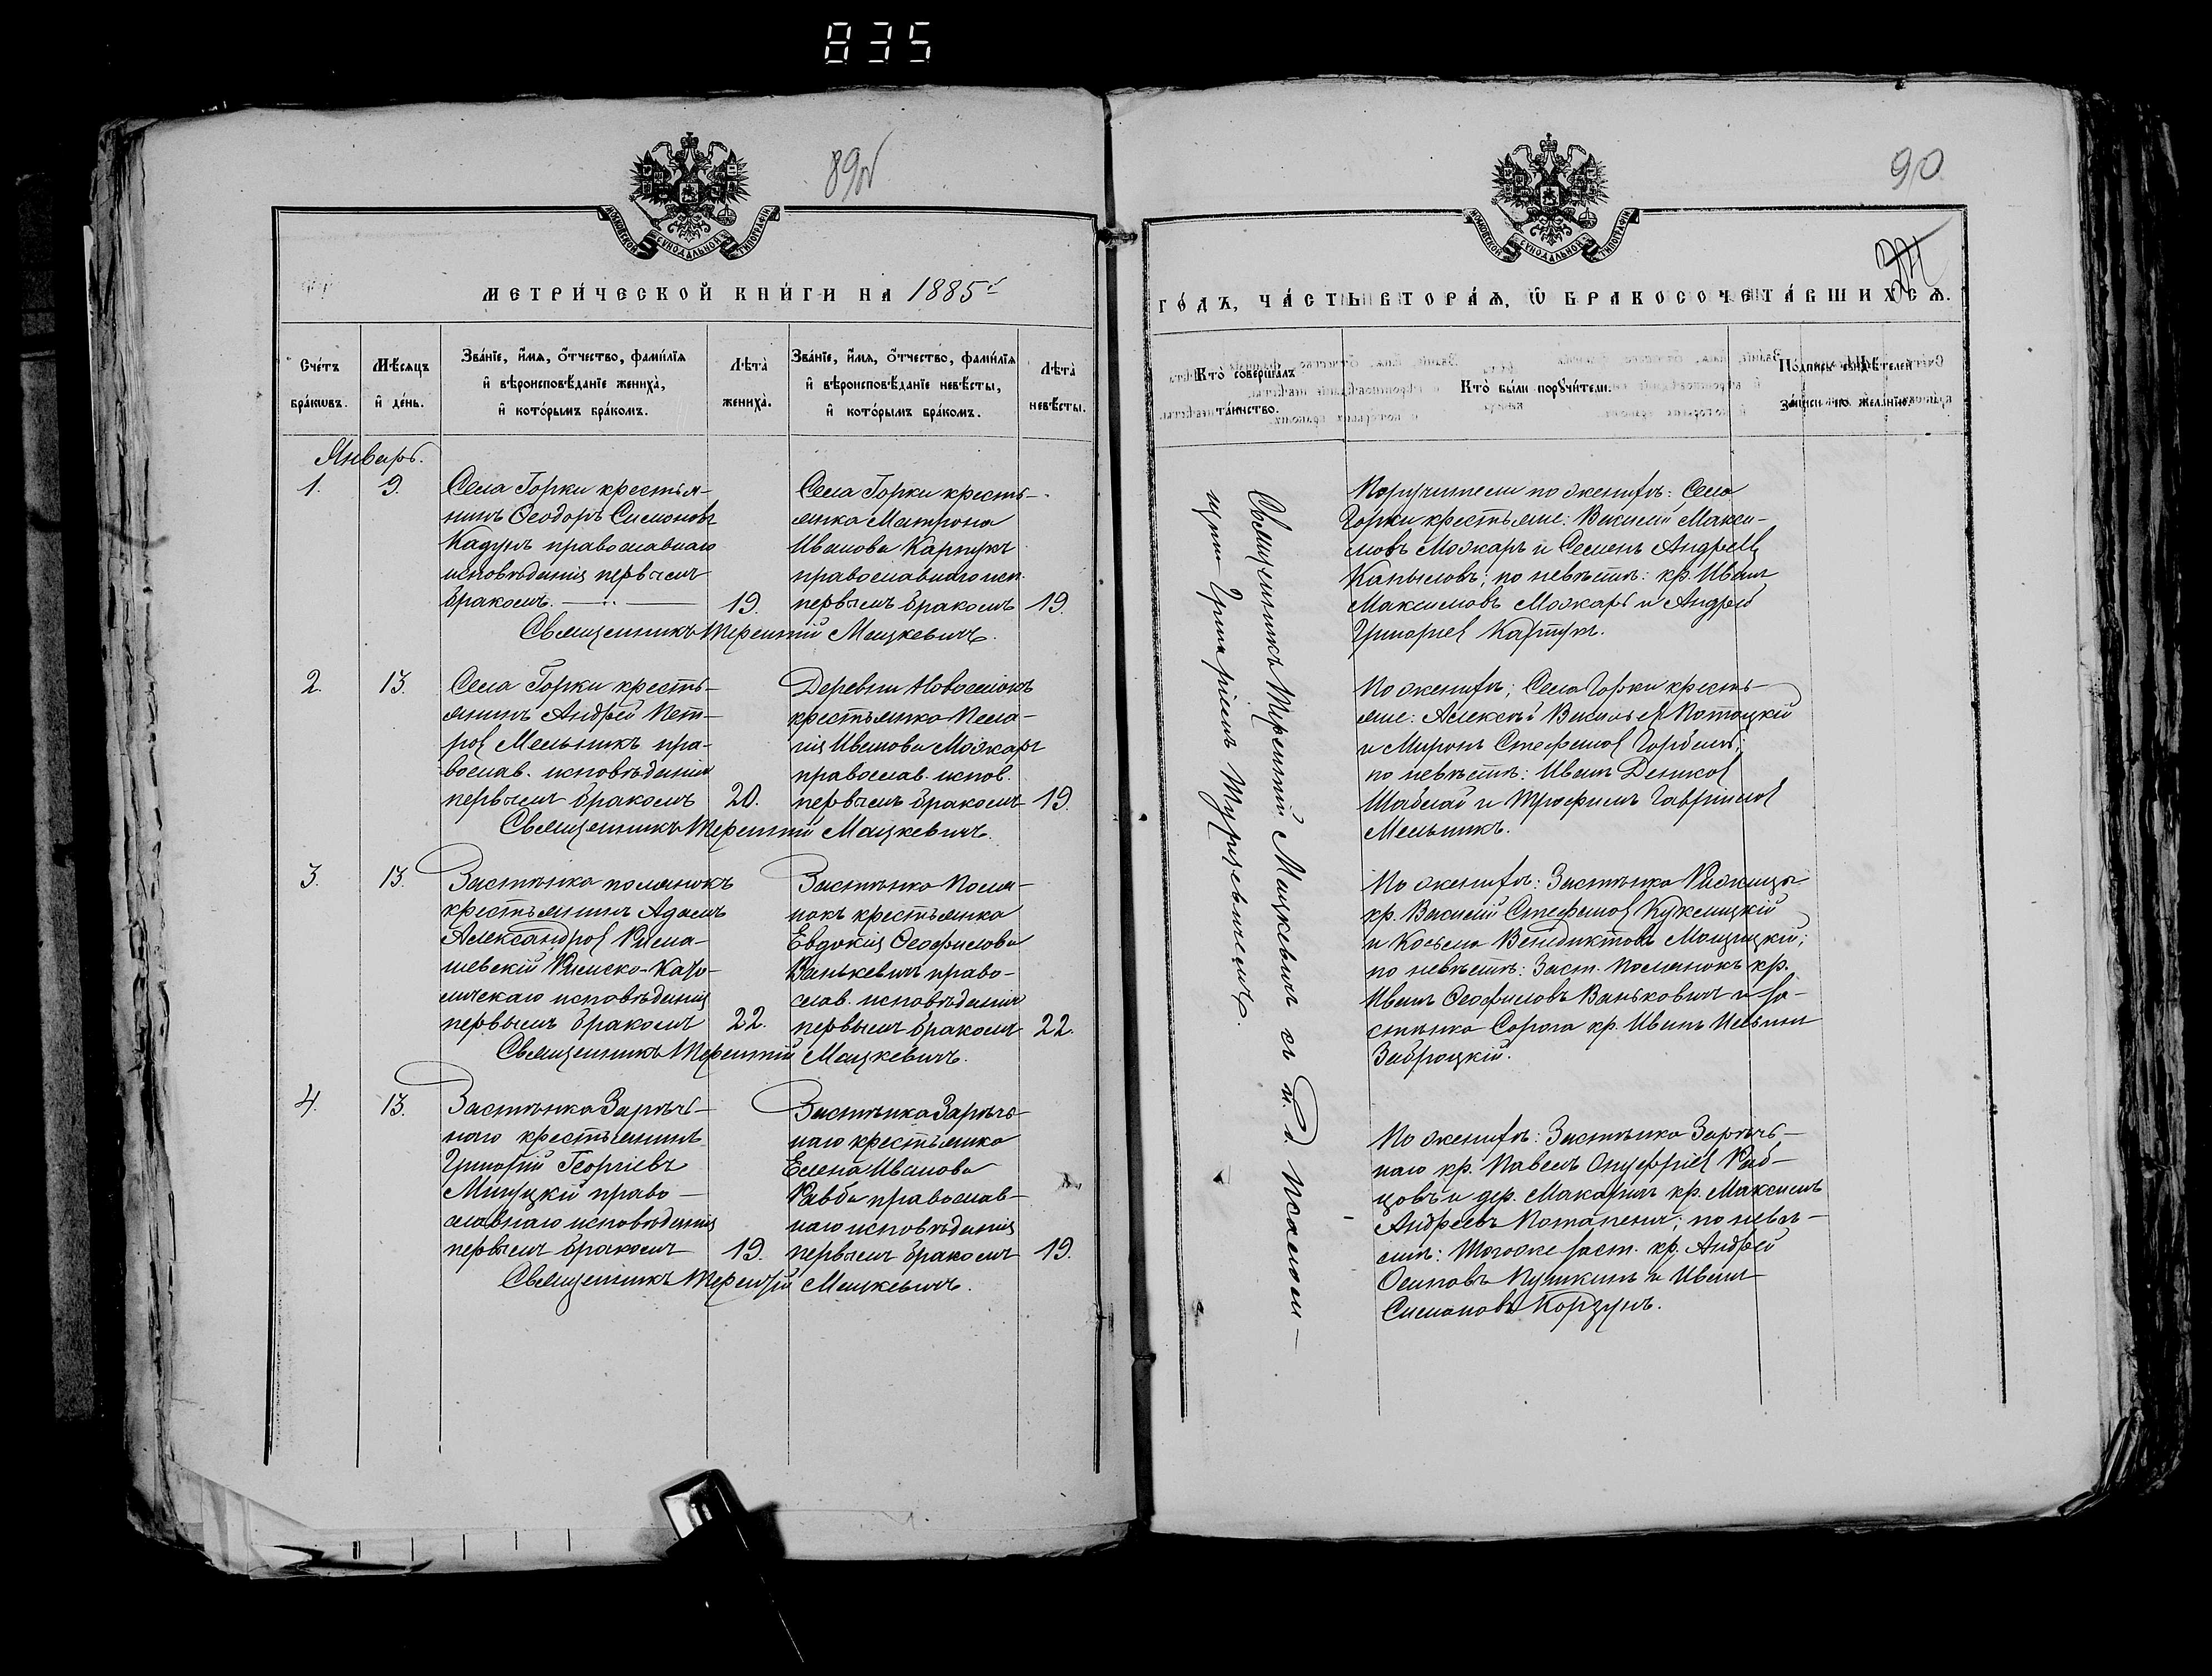 835
89об
МОСКОВСКОЙ СѴНОДАЛЬНОЙ ТИПОГРАФІИ
МЕТРИ́ЧЕСКОЙ КНИ́ГИ НА 1885й
Сче́тъ бра́кѡвъ.
Мѣ́сяцъ и҆ де́нь.
Зва́нїе, и҆́мѧ, ѻ҆́тчество, фами́лїѧ и҆ вѣроисповѣ́данїе жениха̀, и҆ кото́рымъ бра́комъ.
Лѣ́та жениха̀.
Зва́нїе, и҆́мѧ, ѻ҆́тчество, фами́лїѧ и҆ вѣроисповѣ́данїе невѣ́сты, и҆ кото́рымъ бра́комъ.
Лѣ́та невѣ́сты.
Январь.
1.
9.
Села Горки крестья-
нинъ Ѳеодоръ Симоновъ
Кадунъ православнаго
исповѣданія первымъ
бракомъ.
19.
Села Горки кресть-
янка Матрона
Иванова Карпукъ
православнаго исп.
первымъ бракомъ
19.
Священникъ Терентій Мацкевичъ.
2.
13.
Села Горки кресть-
янинъ Андрей Пет-
ров Мельникъ пра-
вослав. исповѣданія
первымъ бракомъ
20.
Деревни Новоселокъ
крестьянка Пела-
гія Иванова Можаръ
православ. испов.
первымъ бракомъ
19.
Священникъ Терентій Мацкевичъ.
3.
13.
Застѣнка полянокъ
крестьянинъ Адамъ
Александров Рима-
шевскій Римско-Като-
лическаго исповѣданія
первымъ бракомъ
22.
Застѣнка Поля-
нокъ крестьянка
Евдокія Ѳеофилова
Ванькевичъ право-
слав. исповѣданія
первымъ бракомъ
22.
Священникъ Терентій Мацкевичъ.
4.
13.
Застѣнка Зарѣч-
наго крестьянинъ
Григорій Георгіевъ
право-
славнаго исповѣданія
первымъ бракомъ
19.
Застѣнка Зарѣч-
наго крестьянка
Елена Иванова
православ-
наго исповѣданія
первымъ бракомъ
19.
Священникъ Терентій Мацкевичъ.
90
МОСКОВСКОЙ СѴНОДАЛЬНОЙ ТИПОГРАФІИ
ГО́ДЪ, ЧА́СТЬ ВТОРА́Ѧ, Ѡ҆ БРАКОСОЧЕТА́ВШИХСѦ.
Кто̀ соверша́лъ та́инство.
Кто̀ бы́ли порꙋчи́тели.
По́дпись свидѣ́телей за́писи по жела́нїю.
Священникъ Терентій Мацкевичъ съ и. д. псалом-
щика Григоріемъ Турцевичемъ.
Поручители по женихѣ: Села
Горки крестьяне: Василій Макси-
мовъ Можаръ и Семенъ Андреев
Капыловъ; по невѣстѣ: кр. Иванъ
Максимовъ Можаръ и Андрей
Григорьев Карпукъ.
По женихѣ; Села Горки кресть-
яне: Алексѣй Васильев Потоцкій
и Миронъ Стефанов
по невѣстѣ: Иванъ Денисов
Шаблай и Трофимъ Гавріилов
Мельникъ.
По женихѣ: Застѣнка
кр. Василій Стефанов
и Косьма Венедиктовъ
по невѣстѣ: Заст. Полянокъ кр.
Иванъ Ѳеофиловъ Ваньковичъ и за-
стѣнка Сорога кр. Иванъ Ильинъ
Заброцкій.
По женихѣ: Застѣнка Зарѣч-
наго кр. Павелъ Онуфріев Раб-
цовъ и дер. Макаричъ кр. Максимъ
Андреевъ Потапенъ; по невѣ-
стѣ: Тогоже заст. кр. Андрей
Осиповъ Пушкинъ и Иванъ
Симоновъ Корзунъ.